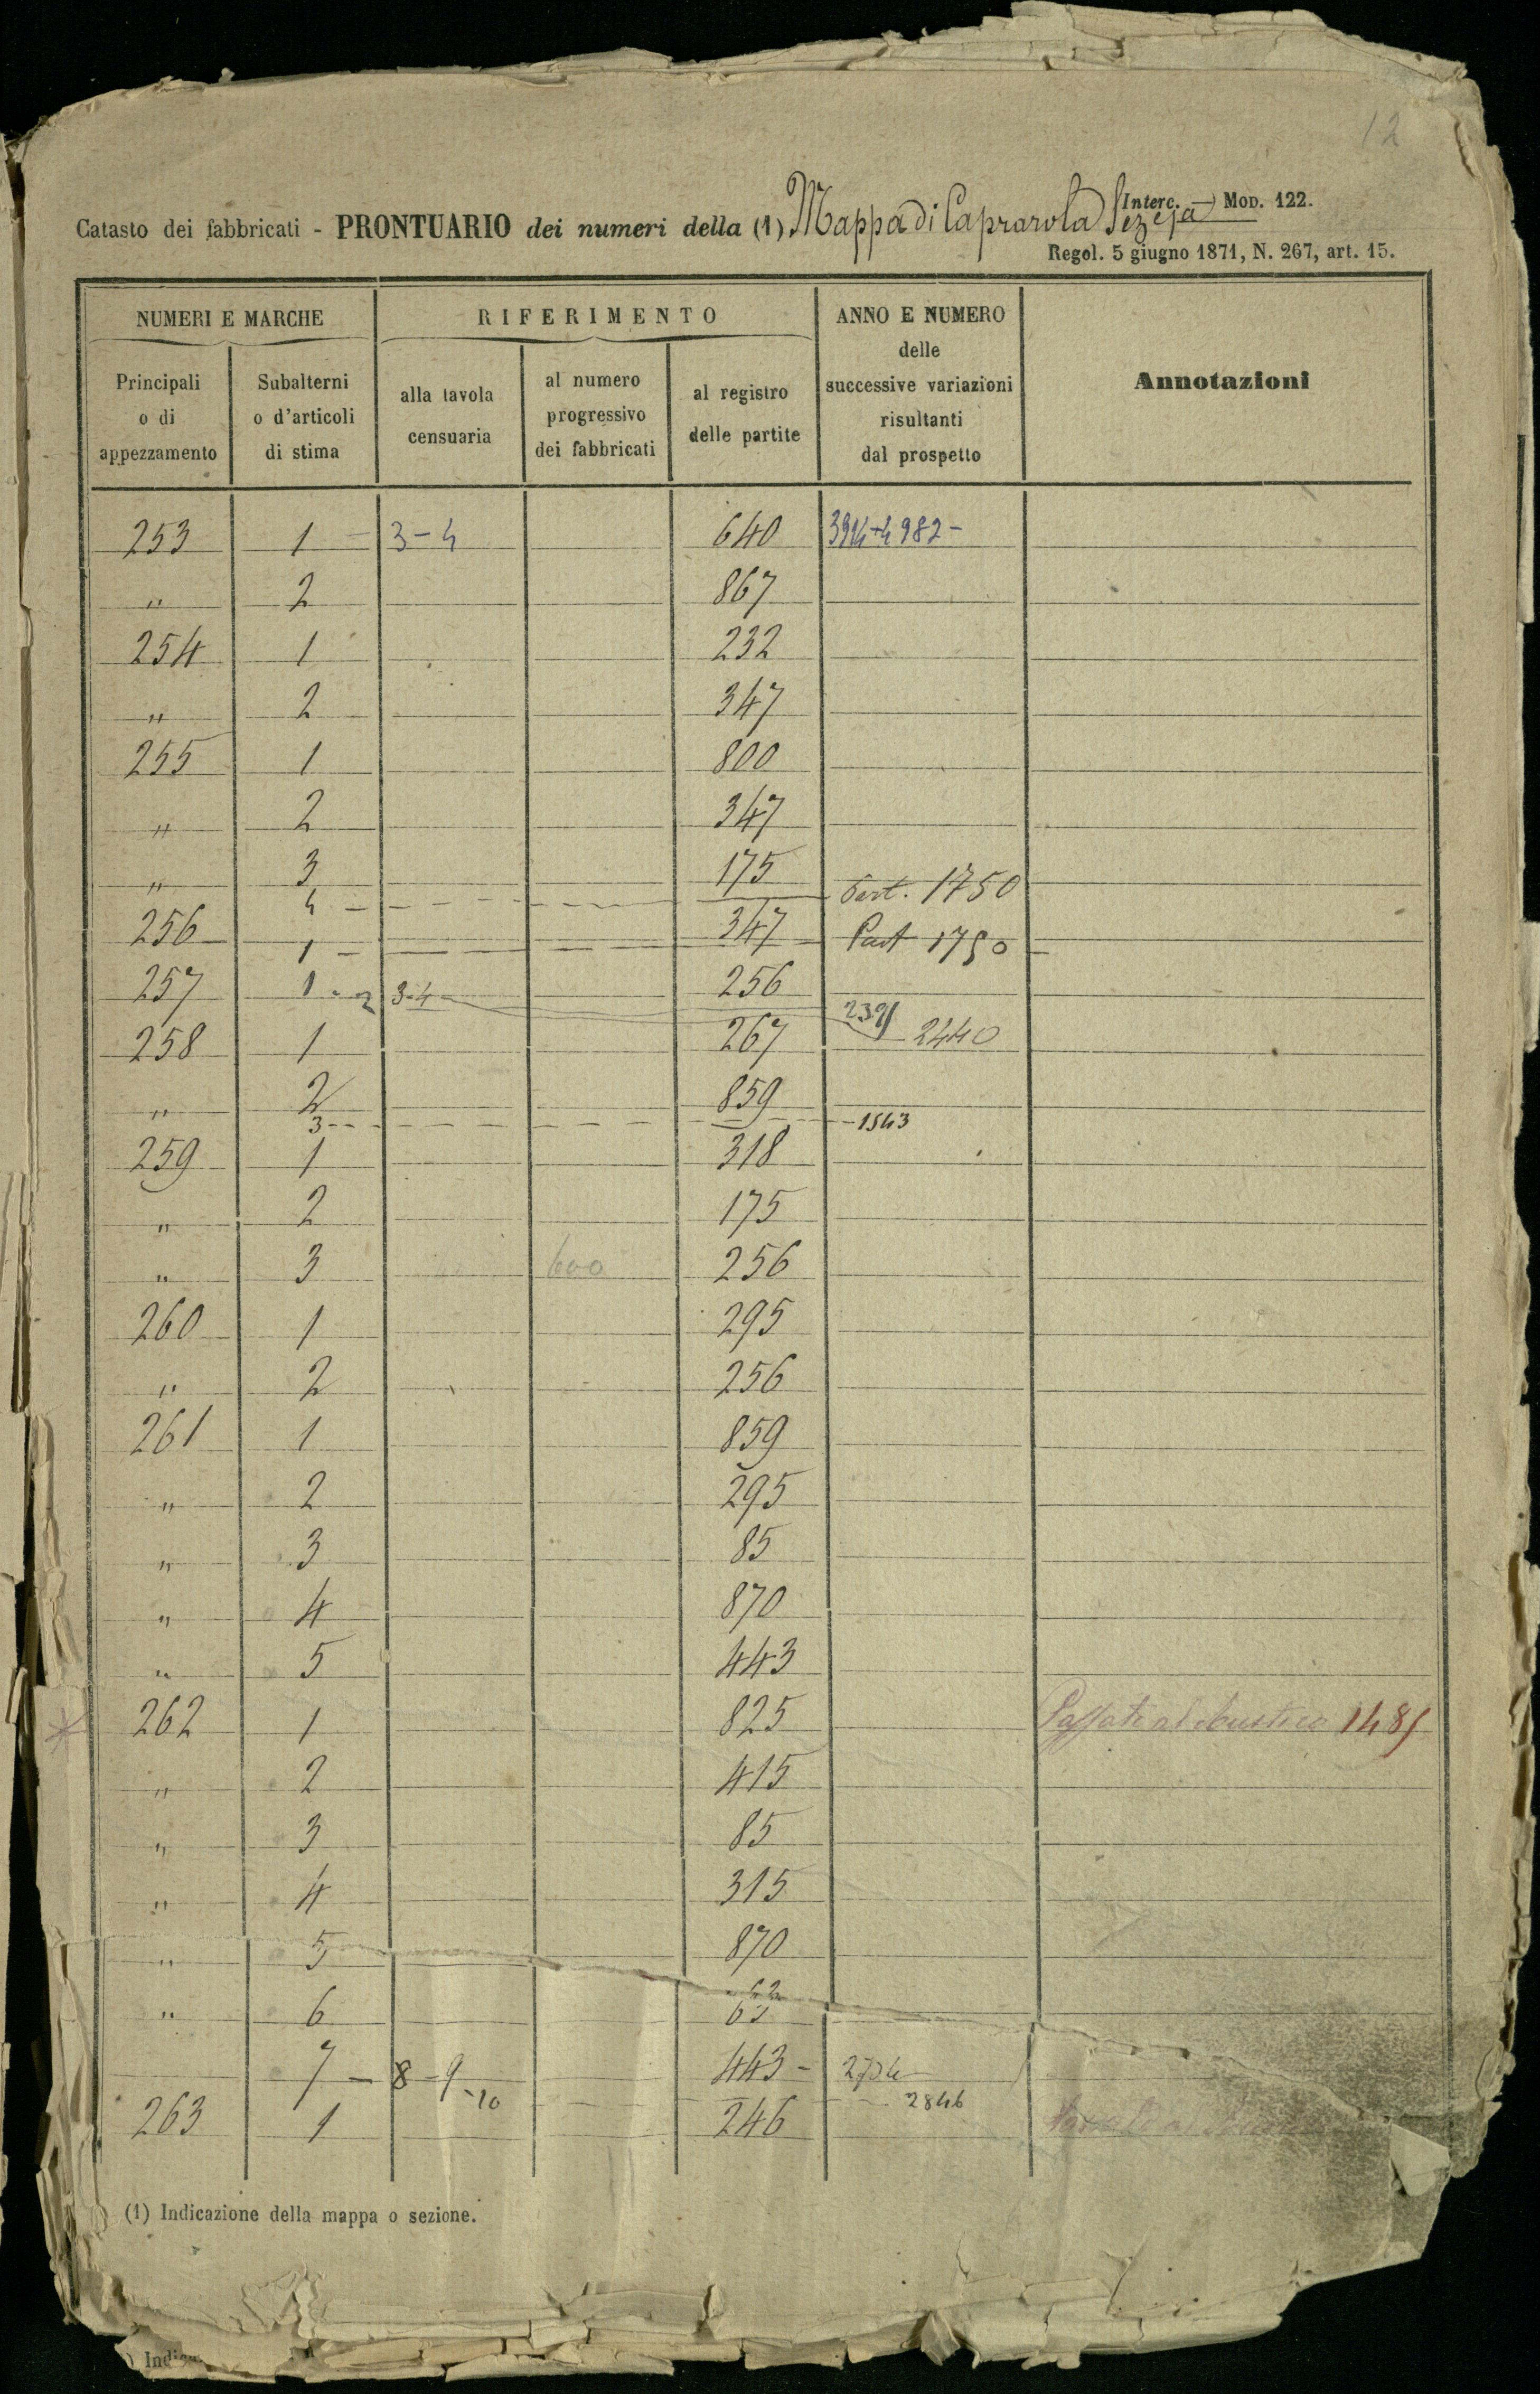 12
Interc. Mod. 122.
Catasto dei fabbricati - PRONTUARIO dei numeri della (1) Mappa di Caprarola Sez. 1a
Regol. 5 giugno 1871, N. 267, art. 15.
NUMERI E MARCHE RIFERIMENTO ANNO E NUMERO delle successive variazioni risultanti dal prospetto Annotazioni
Principali o di appezzamento Subalterni o d'articoli di stima alla tavola censuaria al numero progressivo dei fabbricati al registro delle partite
253 1 3-4 640 3914-4982-
" 2 867
254 1 232
" 2 347
255 1 800
" 2 347
" 3 175
4 Part. 1750
256 1 347 Part 1750
257 1-2 3-4 256
2391 2440
258 1 267
" 2 859
3 1543
259 1 318
" 2 175
" 3 600 256
260 1 295
" 2 256
261 1 859
" 2 295
" 3 85
" 4 870
" 5 443
262 1 825 Passato al 1485
" 2 415
" 3 85
" 4 315
" 5 870
" 6 63
7-8-9 443-
-10 2846
263 1 246
(1) Indicazione della mappa o sezione.